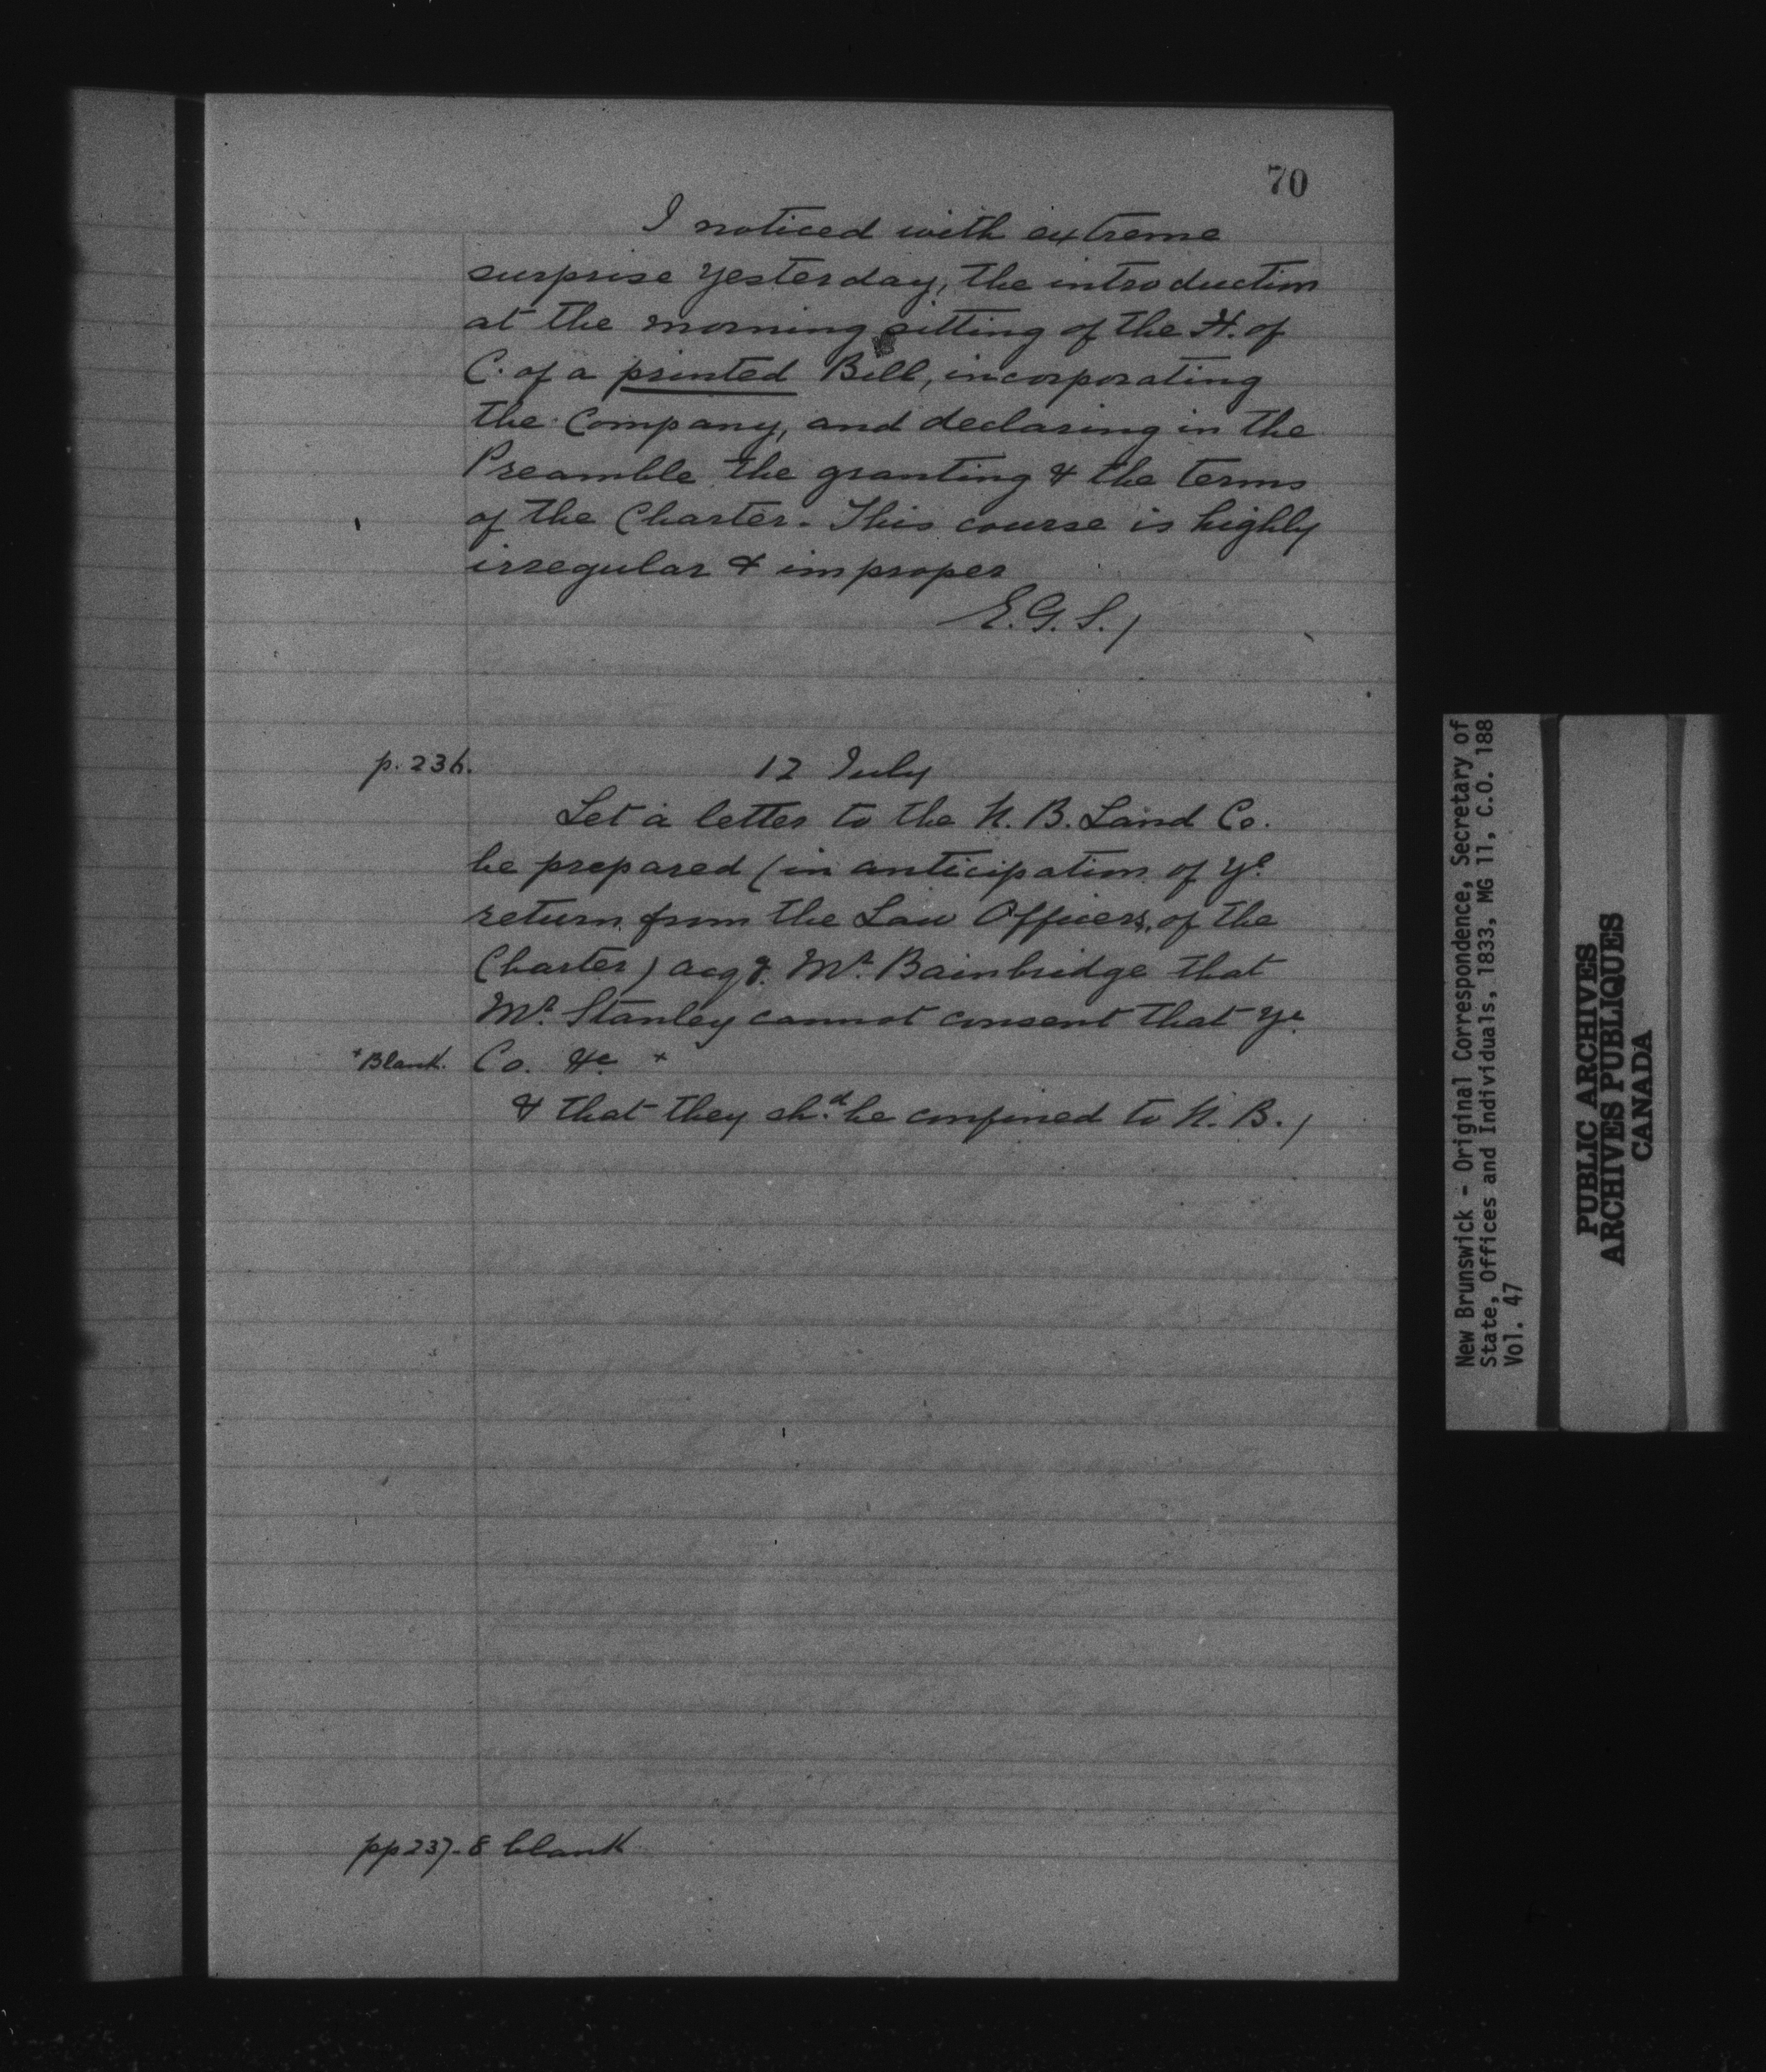 70
I noticed with extreme
surprise yesterday, the introduction
at the morning sitting of the H. of
C. of a printed Bill, incorporating
the Company, and declaring in the
Preamble the granting & the terms
of the Charter. This course is highly
irregular & improper
E.G.S./
p. 236. 12 July
Let a letter to the N. B. Land Co.
be prepared (in anticipation of ye
return from the Law Officers, of the
Charter) acqg. Mr. Bainbridge that
Mr. Stanley cannot consent that ye
+Blank. Co. &c +
& that they shd. be confined to N. B./
pp 237-8 blank
New Brunswick - Original Correspondence, Secretary of
State, Offices and Individuals, 1833, MG 11, C.O. 188
Vol. 47
PUBLIC ARCHIVES
ARCHIVES PUBLIQUES
CANADA